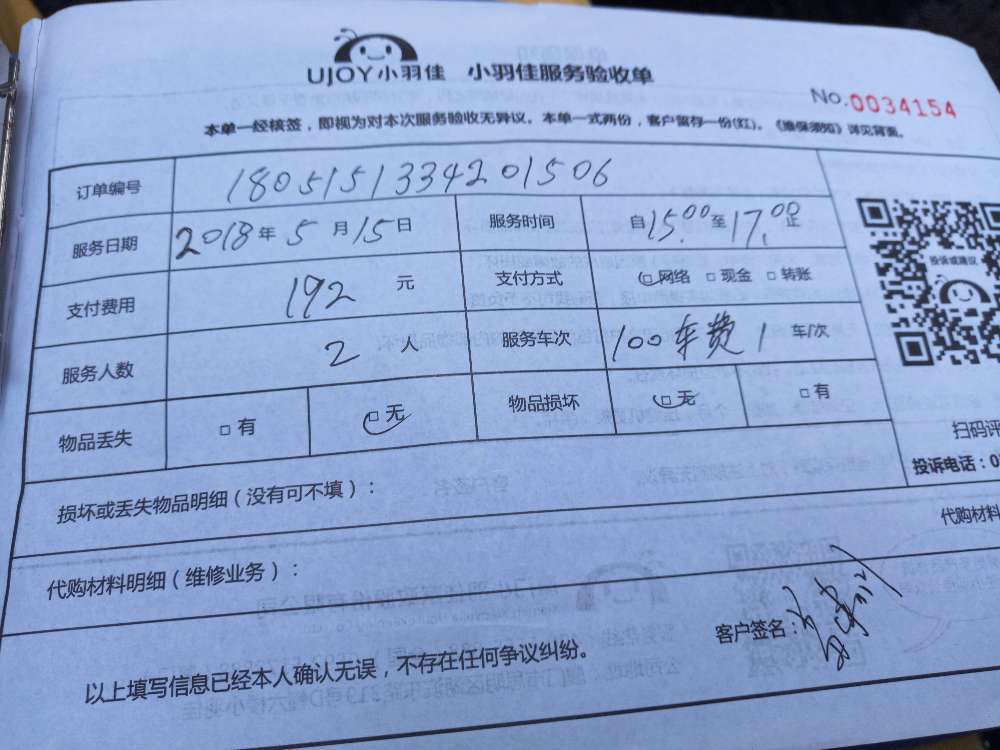 UJOY小羽佳 小羽佳服务验收单
No.0034154
本单一经核签，即视为对本次服务验收无异议。本单一式两份，客户留存一份(红)。《维保须知》详见背面。
订单编号 1805151334201506
服务日期 2018年5月15日 服务时间 自15:00至17:00止
投诉或建议
支付费用 192元 支付方式 □网络 □现金 □转账
服务人数 2人 服务车次 100车费1车/次
物品丢失 □有 □无 物品损坏 □无 □有
扫码评
投诉电话：0
损坏或丢失物品明细（没有可不填）：
代购材料
代购材料明细（维修业务）：
客户签名：
以上填写信息已经本人确认无误，不存在任何争议纠纷。